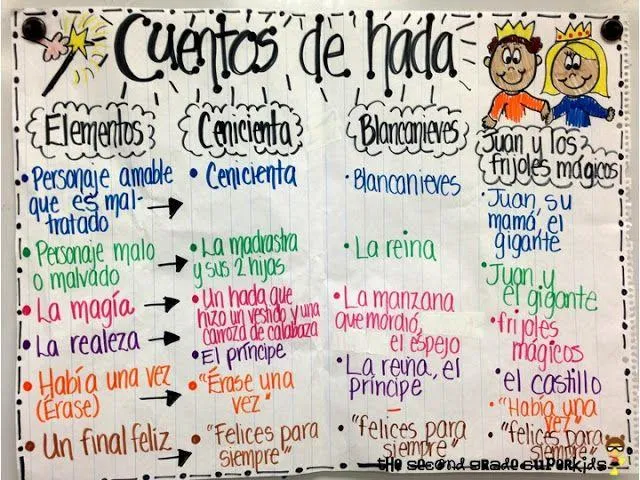 Cuentos de hada
Elementos
• Personaje amable
que es mal-
tratado
• Personaje malo
o malvado
• La magía
• La realeza
• Había una vez
(Érase)
• Un final feliz
Cenicienta
• Cenicienta
• La madrastra
y sus 2 hijas
• Un hada que
hizo un vestido y una
carroza de calabaza
• El príncipe
• "Érase una
vez"
• "Felices para
siempre"
Blancanieves
• Blancanieves
• La reina
• La manzana
que mordió,
el espejo
• La reina, el
príncipe
–
• "felices para
siempre"
Juan y los
frijoles mágicos
• Juan, su
mamá, el
gigante
• Juan y
el gigante
• frijoles
mágicos
• el castillo
• "Había una
vez"
• "felices para
siempre"
the second grade superkids